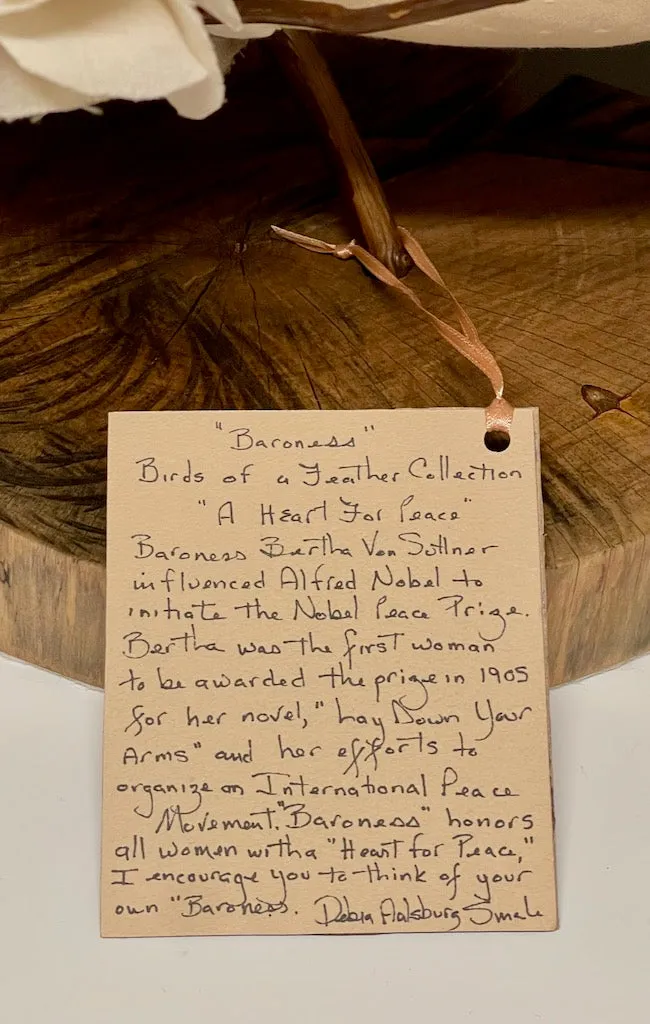 "Baroness"
Birds of a Feather Collection
"A Heart For Peace"
Baroness Bertha Von Suttner
influenced Alfred Nobel to
initiate the Nobel Peace Prize.
Bertha was the first woman
to be awarded the prize in 1905
for her novel, "Lay Down Your
Arms" and her efforts to
organize an International Peace
Movement. "Baroness" honors
all women with a "Heart for Peace,"
I encourage you to think of your
own "Baroness. Debra Aalsburg